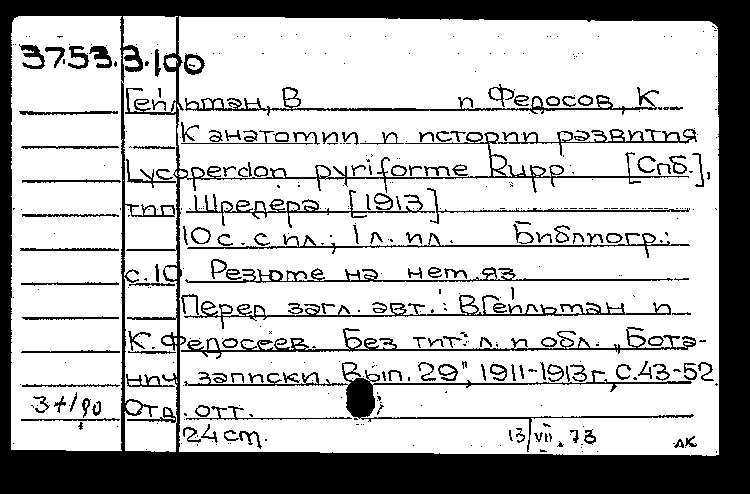 3753.3.100
Гейльман, В и Федосов, К
К анатомии и истории развития
Lycoperdon pyriforme Rupp. [Спб.],
тип. Шредера, [1913]
10 с. с ил.; 1 л. ил. Библиогр.:
с.10. Резюме на нем. яз
Перед загл. авт.: В.Гейльман и
К.Федосеев. Без тит. л. и обл. „Бота-
нич. записки. Вып. 29", 1911-1913 г., с.43-52
Отд. отт.
24 cm. 13/VII.73 АК